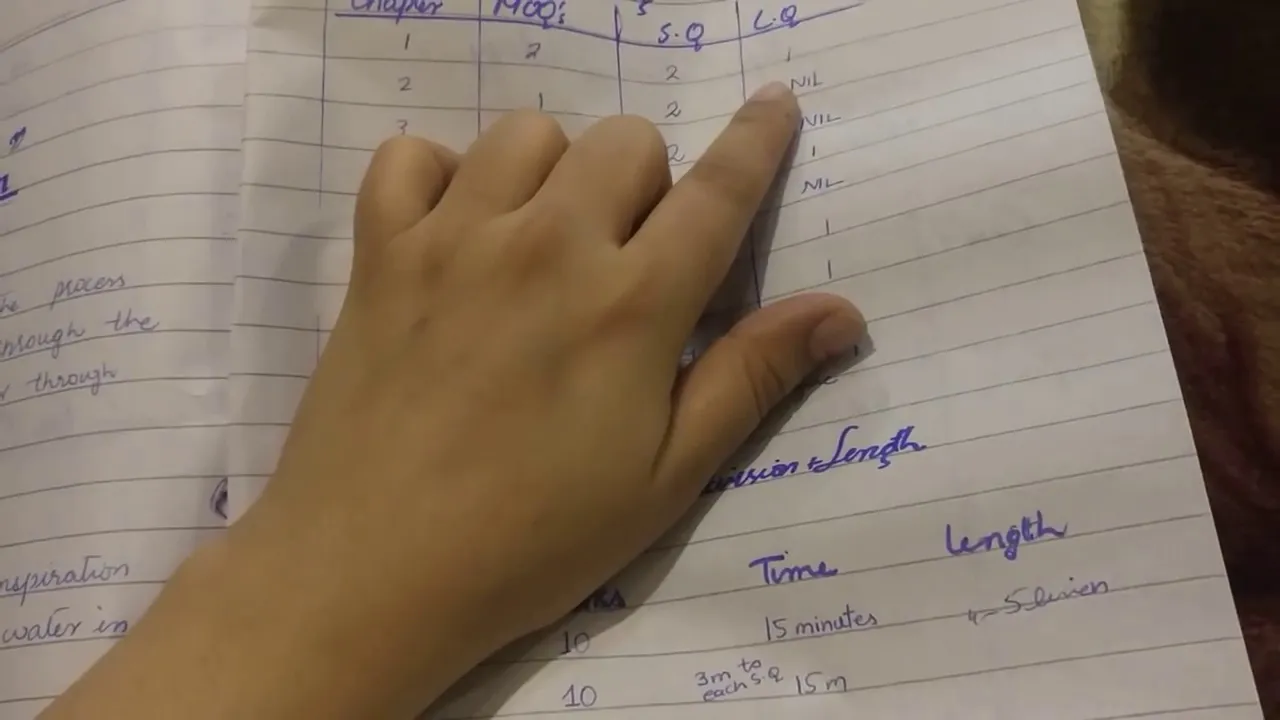 Chapter MCQ's S.Q L.Q
1 2 2 1
2 1 2 NIL
3 2 NIL
1
NIL
1
1
the process
through the
through
Length
Time Length
nspiration
10 15 minutes
water in
10 3m to each S.Q 15m